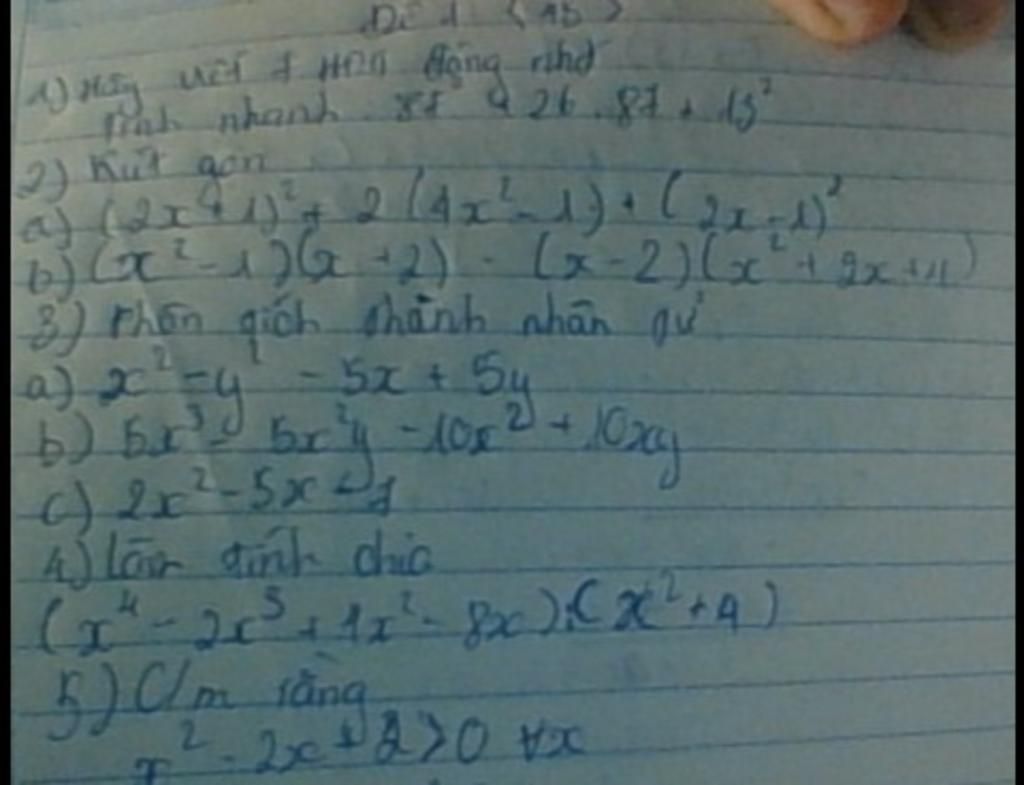 Đề 1 (45)
1) Hãy viết 7 HĐT đáng nhớ
Tính nhanh 87² + 26.87 + 13²
2) Rút gọn
a) (2x+1)² + 2(4x²-1) + (2x-1)²
b) (x²-1)(x+2) - (x-2)(x²+2x+4)
3) Phân tích thành nhân tử
a) x² - y² - 5x + 5y
b) 5x³ - 5x²y - 10x² + 10xy
c) 2x² - 5x - 7
4) Làm tính chia
(x⁴ - 2x³ + 4x² - 8x) : (x² + 4)
5) C/m rằng
x² - 2x + 2 > 0 ∀x